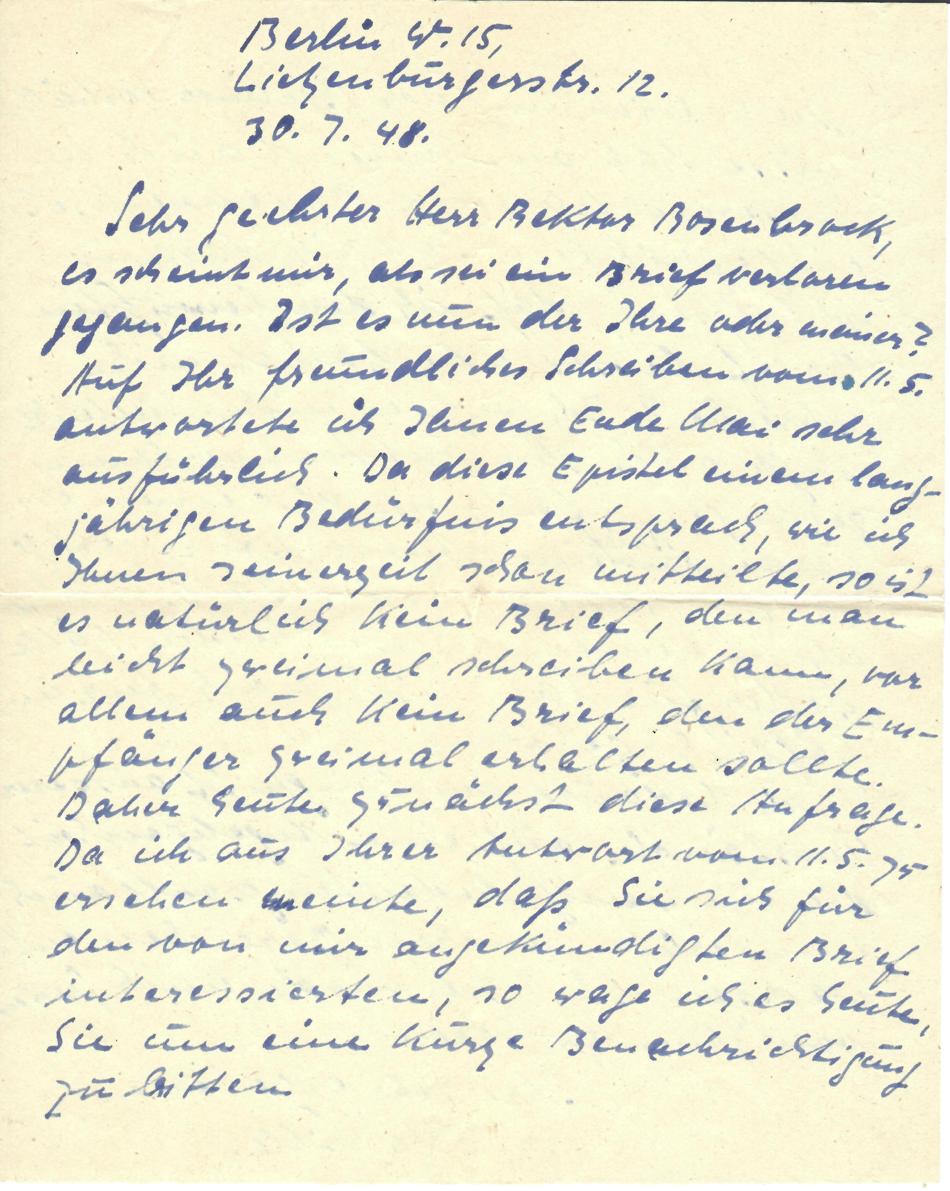 Berlin W. 15,
Lietzenbürgerstr. 12.
30. 7. 48.
Sehr geehrter Herr Rektor Rosenbrock,
es scheint mir, als sei ein Brief verloren
gegangen. Ist es nun der Ihre oder meiner?
Auf Ihr freundliches Schreiben vom 11. 5.
antwortete ich Ihnen Ende Mai sehr
ausführlich. Da diese Epistel einem lang-
jährigen Bedürfnis entsprach, wie ich
Ihnen seinerzeit schon mitteilte, so ist
es natürlich kein Brief, den man
leicht zweimal schreiben kann, vor
allem auch kein Brief, den der Em-
pfänger zweimal erhalten sollte.
Daher heute zunächst diese Anfrage.
Da ich aus Ihrer Antwort vom 11. 5. zu
ersehen meinte, daß Sie sich für
den von mir angekündigten Brief
interessierten, so wage ich es heute,
Sie um eine kurze Benachrichtigung
zu bitten